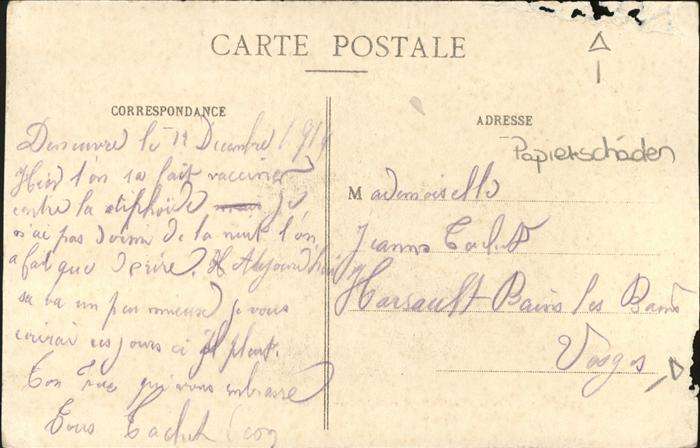 CARTE POSTALE
CORRESPONDANCE
ADRESSE
Papierschäden
Deneuvre le 12 Decembre 1914
Hier l'on sa fait vacciner
contre la tiphoide je
n'ai pas dormi de la nuit l'on
a fait que d crire. Aujourd'hui
sa va un peu mieux je vous
ecrirai ces jours ci il pleut.
Ton qui vous embrasse
Tous
Mademoiselle
Jeanne
Harsault Bains les Bains
Vosges